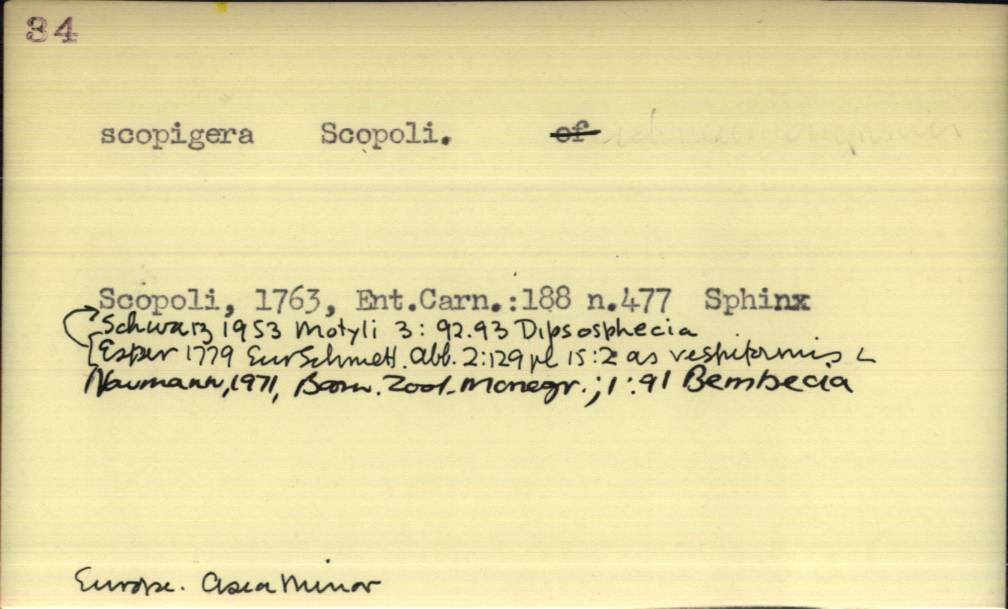 84
scopigera Scopoli. of
Scopoli, 1763, Ent.Carn.:188 n.477 Sphinx
Schwarz 1953 Motyli 3: 92.93 Dipsosphecia
Esper 1779 Eur Schmett. Abb. 2:129 pl 15:2 as vespiformis L
Naumann, 1971, Bonn. Zool. Monogr.; 1:91 Bembecia
Europe. Asia Minor